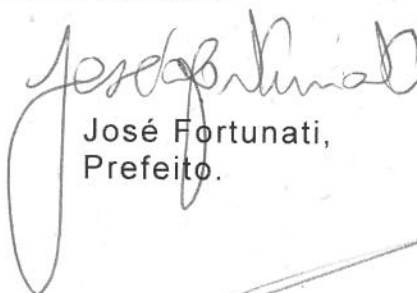 José Fortunati,
Prefeito.